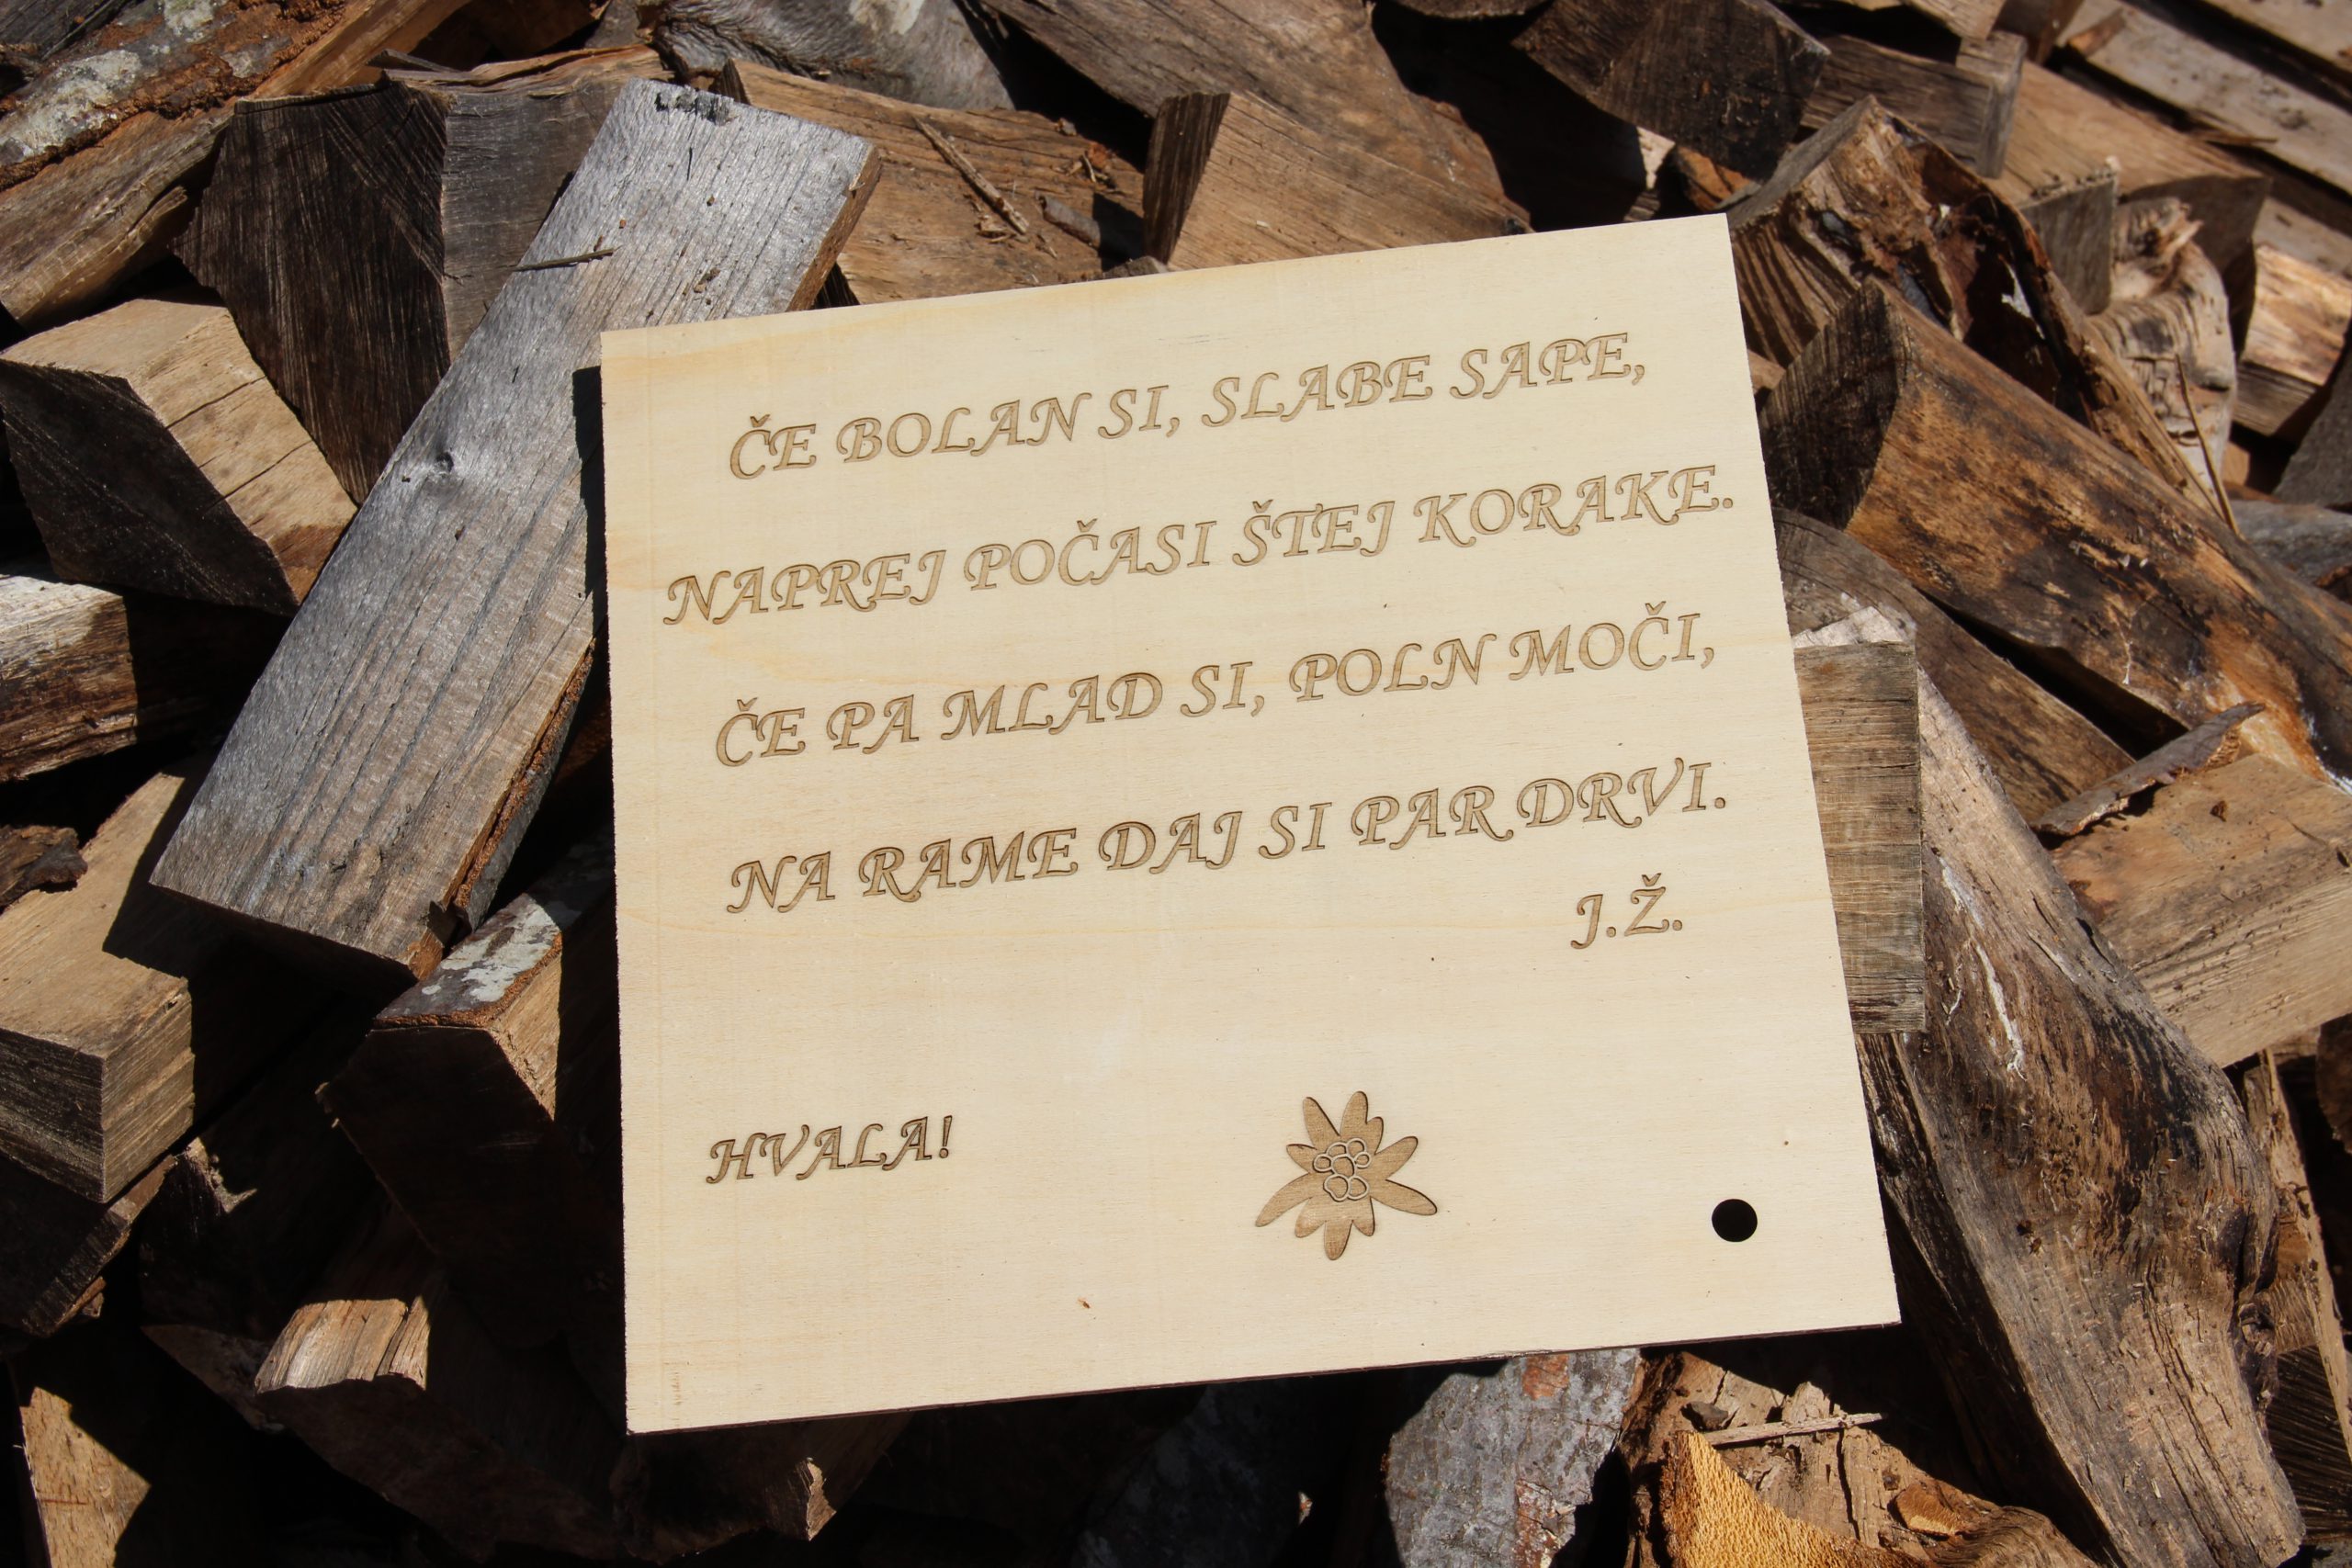 ČE BOLAN SI, SLABE SAPE,
NAPREJ POČASI ŠTEJ KORAKE.
ČE PA MLAD SI, POLN MOČI,
NA RAME DAJ SI PAR DRVI.
J.Ž.
HVALA!